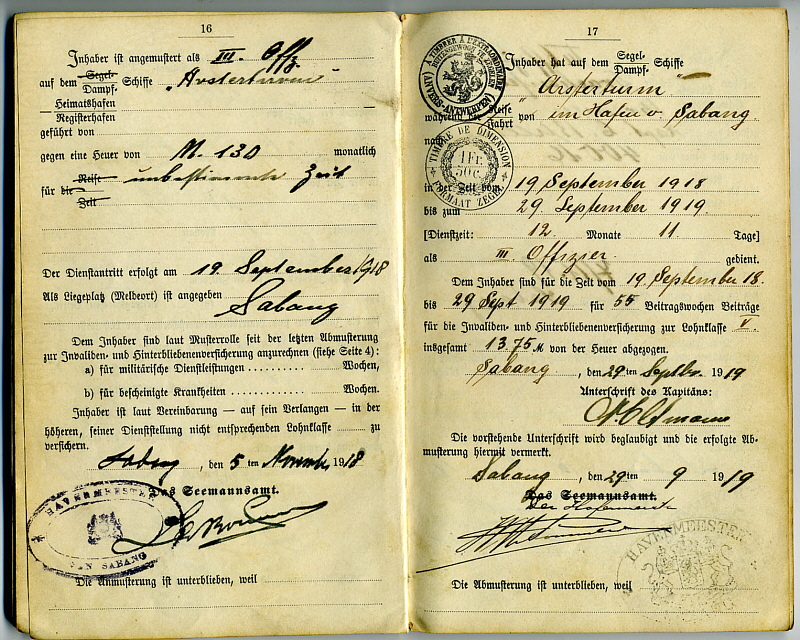 16
Inhaber ist angemustert als III. Offz
auf dem Segel- Dampf- Schiffe "Arsterturm"
Heimatshafen
Registerhafen
geführt von
gegen eine Heuer von M. 130 monatlich
für die Reise Zeit unbestimmte Zeit
Der Dienstantritt erfolgt am 19. September 1918
Als Liegeplatz (Meldeort) ist angegeben
Sabang
Dem Inhaber sind laut Musterrolle seit der letzten Abmusterung
zur Invaliden- und Hinterbliebenenversicherung anzurechnen (siehe Seite 4):
a) für militärische Dienstleistungen .......... Wochen,
b) für bescheinigte Krankheiten .......... Wochen.
Inhaber ist laut Vereinbarung — auf sein Verlangen — in der
höheren, seiner Dienststellung nicht entsprechenden Lohnklasse zu
versichern.
Sabang, den 5 ten Novemb. 1918
Das Seemannsamt.
HAVENMEESTER
VAN SABANG
Die Anmusterung ist unterblieben, weil
17
À TIMBRER À L'EXTRAORDINAIRE
BUITENGEWOON TE ZEGELEN
(ANVERS-ANTWERPEN)
Inhaber hat auf dem Segel- Dampf- Schiffe
"Arsterturm"
während der Reise Fahrt von im Hafen v. Sabang
nach
TIMBRE DE DIMENSION
1 Fr.
50 c.
FORMAAT ZEGEL
in der Zeit vom 19 September 1918
bis zum 29 September 1919.
[Dienstzeit: 12. Monate 11. Tage]
als III. Offizier. gedient.
Dem Inhaber sind für die Zeit vom 19. September 18.
bis 29 Sept 1919 für 55 Beitragswochen Beiträge
für die Invaliden- und Hinterbliebenenversicherung zur Lohnklasse V.
insgesamt 13.75 M von der Heuer abgezogen.
Sabang, den 29 ten Septbr. 1919
Unterschrift des Kapitäns:
Die vorstehende Unterschrift wird beglaubigt und die erfolgte Ab-
musterung hiermit vermerkt.
Sabang, den 29 ten 9 1919
Das Seemannsamt.
Der Hafenmeister
HAVENMEESTER
Die Abmusterung ist unterblieben, weil